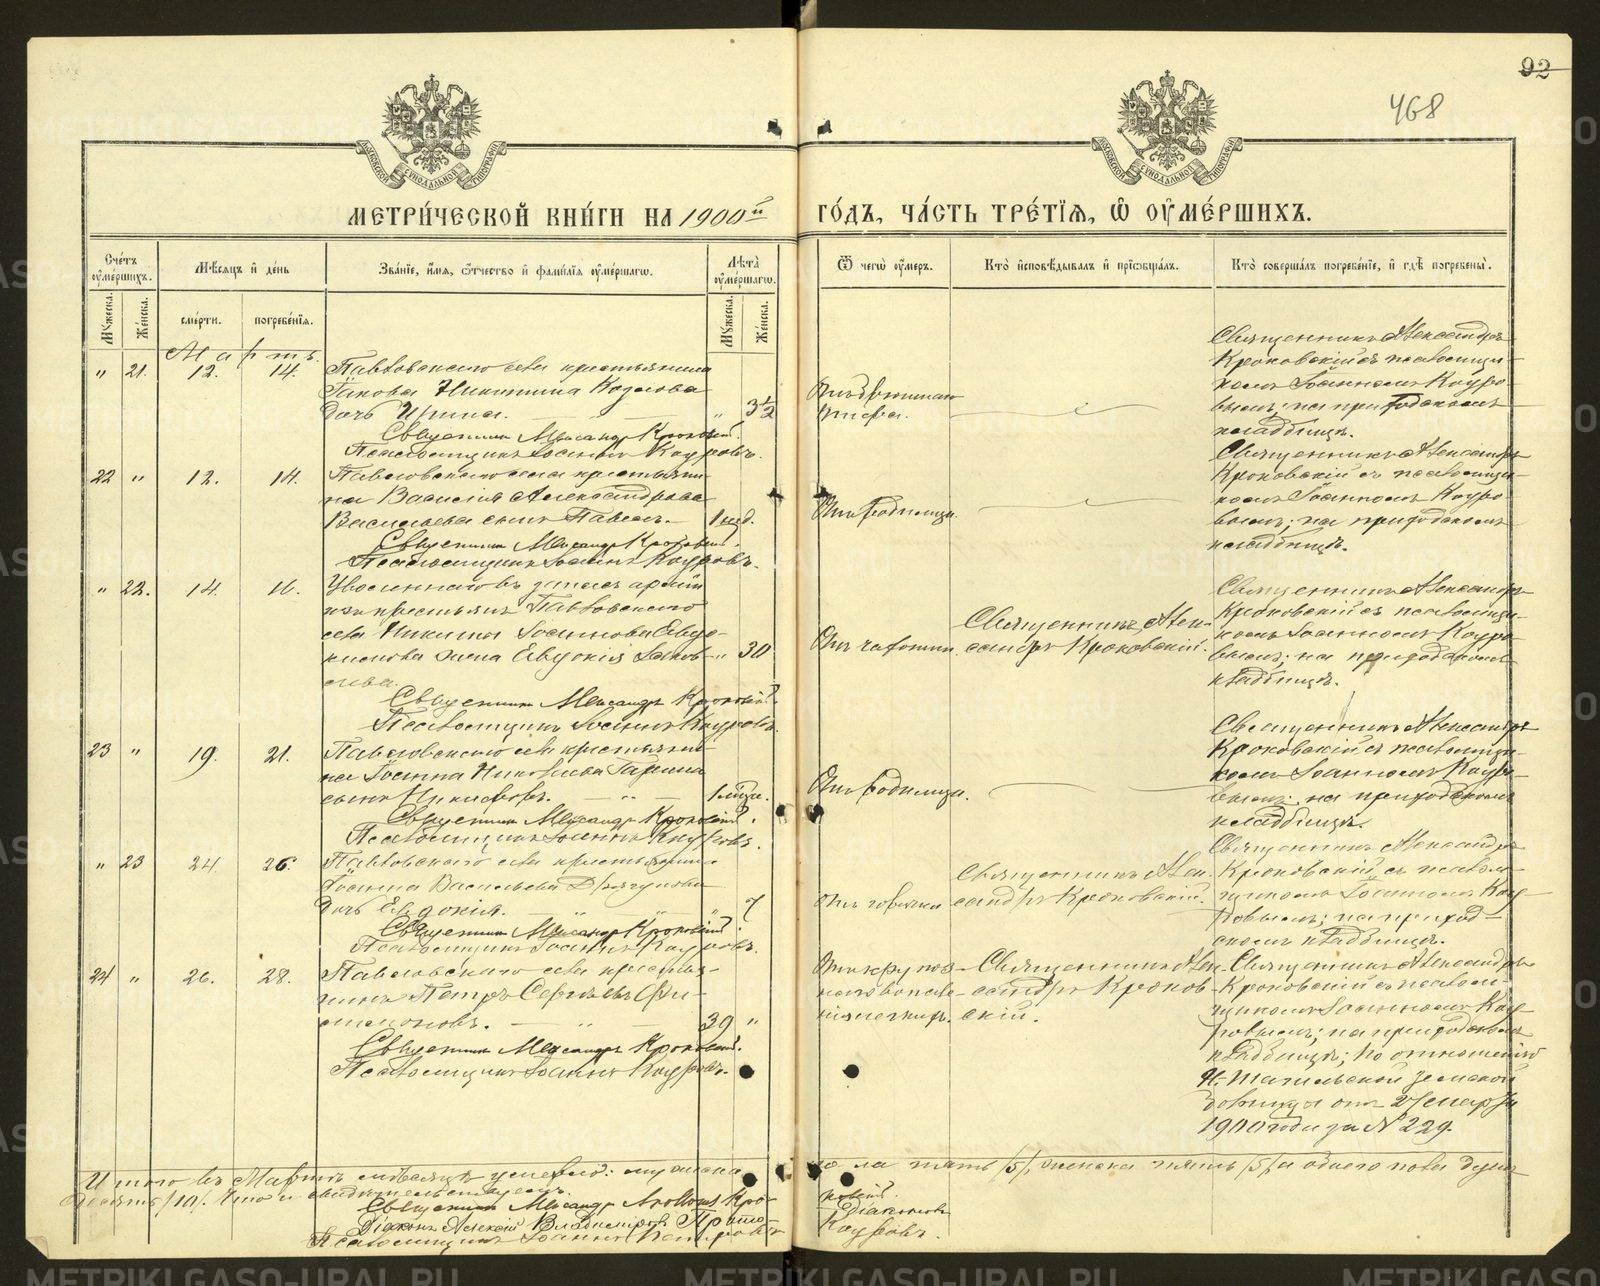 92
468
МЕТРИ́ЧЕСКОЙ КНИ́ГИ НА 1900й ГО́ДЪ, ЧА́СТЬ ТРЕ́ТІѦ, Ѿ ОУМЕ́РШИХЪ.
Сче́тъ оуме́ршихъ.
Мѣ́сяцъ и де́нь
Зва́нїе, и́мя, о́тчество и фами́лїя оуме́ршагѡ.
Лѣта̀ оуме́ршагѡ.
Ѿ чегѡ̀ оу́меръ.
Кто̀ исповѣ́дывалъ и прїѡбща́лъ.
Кто̀ соверша́лъ погребе́нїе, и гдѣ̀ погребены̀.
Мужеска.
Же́нска.
сме́рти.
погребе́нїя.
Мужеска.
Же́нска.
Мартъ.
" 21. 12. 14.
Павловскаго села крестьянина
Іакова Никитина Козлова
дочь Ирина. " 3½
Священникъ Александръ Кроковскій.
Псаломщикъ Іоаннъ Кауровъ.
Священникъ Александръ
Кроковскій съ псаломщи-
комъ Іоанномъ Кауро-
вымъ; на приходскомъ
кладбищѣ.
22 " 12. 14.
Павловскаго села крестьяни-
на Василія Александрова
Васильева сынъ Павелъ. 1 нед.
Священникъ Александръ Кроковскій.
Псаломщикъ Іоаннъ Кауровъ.
Отъ родимца.
Священникъ Александръ
Кроковскій съ псаломщи-
комъ Іоанномъ Кауро-
вымъ; на приходскомъ
кладбищѣ.
" 22. 14. 16.
Уволеннаго въ запасъ арміи
изъ крестьянъ Павловскаго
села Никиты Іоаннова Евдо-
кимова жена Евдокія Іаков- " 30
лева.
Священникъ Александръ Кроковскій.
Псаломщикъ Іоаннъ Кауровъ.
Отъ чахотки.
Священникъ Алек-
сандръ Кроковскій.
Священникъ Александръ
Кроковскій съ псаломщи-
комъ Іоанномъ Кауро-
вымъ; на приходскомъ
кладбищѣ.
23 " 19. 21.
Павловскаго села крестьяни-
на Іоанна
сынъ
Священникъ Александръ Кроковскій.
Псаломщикъ Іоаннъ Кауровъ.
Отъ родимца.
Священникъ Александръ
Кроковскій съ псаломщи-
комъ Іоанномъ Кауро-
вымъ; на приходскомъ
кладбищѣ.
" 23 24. 26.
Павловскаго села крестьянина
Іоанна Васильева
дочь Евдокія. " 7
Священникъ Александръ Кроковскій.
Псаломщикъ Іоаннъ Кауровъ.
Отъ горячки
Священникъ Алек-
сандръ Кроковскій.
Священникъ Александръ
Кроковскій съ псалом-
щикомъ Іоанномъ Кау-
ровымъ; на приход-
скомъ кладбищѣ.
24 " 26. 28.
Павловскаго села крестья-
нинъ Петръ Сергѣевъ Фи-
лимоновъ. 39 "
Священникъ Александръ Кроковскій.
Псаломщикъ Іоаннъ Кауровъ.
Отъ крупоз-
наго воспале-
нія легкихъ.
Священникъ Алек-
сандръ Кроков-
скій.
Священникъ Александръ
Кроковскій съ псалом-
щикомъ Іоанномъ Кау-
ровымъ; на приходскомъ
кладбищѣ; по отношенію
Н.-Тагильской земской
больницы отъ 27 марта
1900 года за № 229.
Итого въ Мартѣ мѣсяцѣ умерло: мужеска пола пять /5/, женска пять /5/, а обоего пола душъ
десять /10/. Что и свидѣтельствуемъ.
Священникъ Александръ Кроковскій.
Діаконъ Алексій Владиміровъ Прото-діаконовъ
Псаломщикъ Іоаннъ Кауровъ.
METRIKI.GASO-URAL.RU